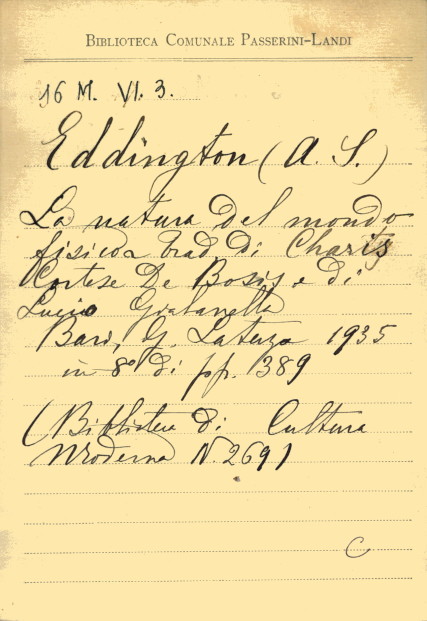 BIBLIOTECA COMUNALE PASSERINI-LANDI
16 M. VI. 3.
Eddington (A. S.)
La natura del mondo
fisico trad. di Charis
Cortese De Bosis e di
Lucio
Bari, G. Laterza 1935
in 8° di pp. 389
(Biblioteca di Cultura
Moderna N. 269)
C